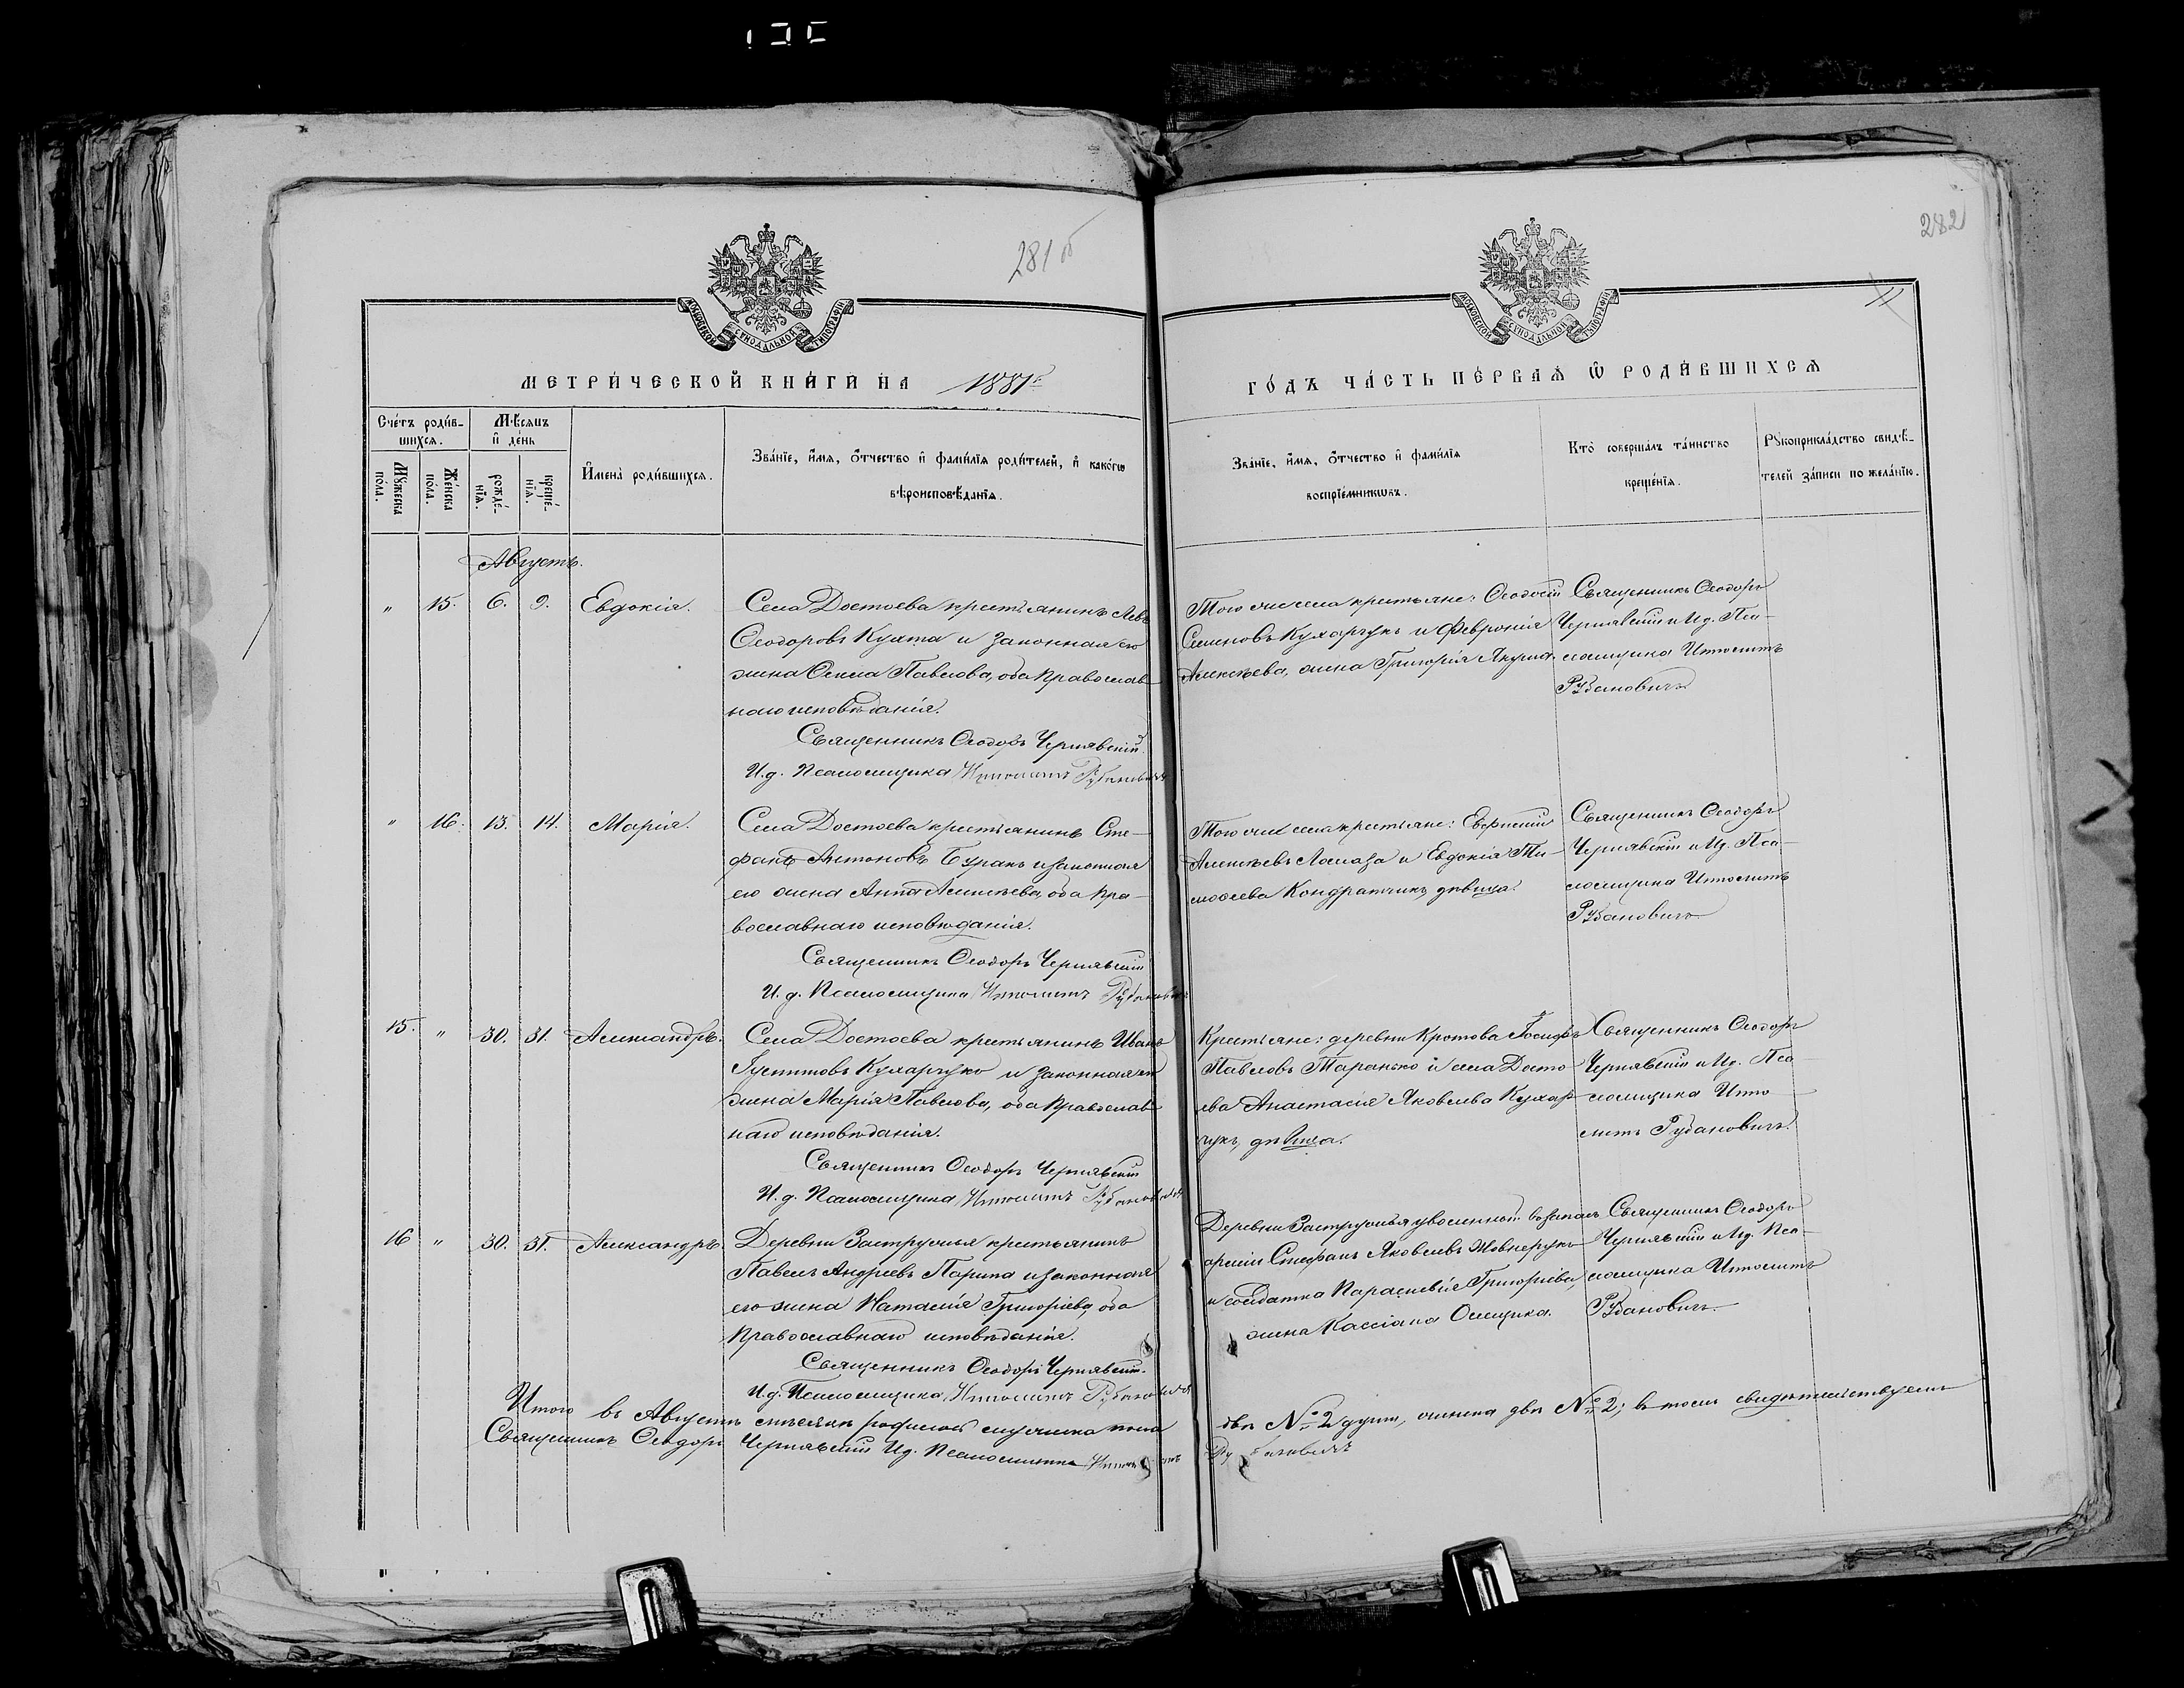 281 об
282
МОСКОВСКОЙ СѴНОДАЛЬНОЙ ТИПОГРАФІИ
МОСКОВСКОЙ СѴНОДАЛЬНОЙ ТИПОГРАФІИ
МЕТРИ́ЧЕСКОЙ КНИ́ГИ НА 1881 г.
ГО́ДЪ ЧА́СТЬ ПЕ́РВАѦ Ѿ РОДИ́ВШИХСѦ
Сче́тъ роди́в-
шихсѧ.
Мѣ́сѧцъ
и҆ де́нь
Мꙋ́жеска по́ла.
Же́нска по́ла.
рожде́-нїѧ.
креще́-нїѧ.
И҆мена̀ роди́вшихсѧ.
Зва́нїе, и҆́мѧ, ѻ҆́тчество и҆ фами́лїѧ роди́телей, и҆ како́гѡ
вѣроисповѣ́данїѧ.
Зва́нїе, и҆́мѧ, ѻ҆́тчество и҆ фами́лїѧ
воспрїе́мникѡвъ.
Кто̀ соверша́лъ та́инство
креще́нїѧ.
Рꙋкоприкла́дство свидѣ́-
телей за́писи по жела́нїю.
Августъ.
" 15. 6. 9. Евдокія.
Села Достоева крестьянинъ Левъ
Ѳеодоровъ Кухта и законная его
жена Павлова, оба православ
наго исповѣданія.
Священникъ Ѳеодоръ Чернявскій.
И. д. Псаломщика Ипполитъ Рубановичъ
Того же села крестьяне: Ѳеодосій
Семеновъ Кухарчукъ и Февронія
Алексѣева, жена Григорія
Священникъ Ѳеодоръ
Чернявскій и И.д. Пса-
ломщика Ипполитъ
Рубановичъ
" 16. 13. 14. Марія.
Села Достоева крестьянинъ Сте-
фанъ Антоновъ Буракъ и законная
его жена Анна Алексѣева, оба пра-
вославнаго исповѣданія.
Священникъ Ѳеодоръ Чернявскій
И. д. Псаломщика Ипполитъ Рубановичъ
Того же села крестьяне:
Алексѣевъ и Евдокія Ти-
моѳеева Кондратчикъ, дѣвица.
Священникъ Ѳеодоръ
Чернявскій и И.д. Пса-
ломщика Ипполитъ
Рубановичъ
15. " 30. 31. Александръ.
Села Достоева крестьянинъ Иванъ
Іустиновъ Кухарчукъ и законная его
жена Марія Павлова, оба православ
наго исповѣданія.
Священникъ Ѳеодоръ Чернявскій
И. д. Псаломщика Ипполитъ Рубановичъ
Крестьяне: деревни Кротова Іосифъ
Павловъ Таранко и села Досто
ева Анастасія Яковлева Кухар
чукъ, дѣвица.
Священникъ Ѳеодоръ
Чернявскій и И.д. Пса-
ломщика Иппо
литъ Рубановичъ.
16 " 30. 31. Александръ.
Деревни Застружья крестьянинъ
Павелъ Андреевъ Парипа и законная
его жена Наталія Григоріева, оба
православнаго исповѣданія.
Священникъ Ѳеодоръ Чернявскій.
И.д. Псаломщика Ипполитъ Рубановичъ
Деревни Застружья уволенный въ запасъ
арміи Стефанъ Яковлевъ Жовнерукъ
и солдатка Параскевія Григоріева,
жена Кассіана
Священникъ Ѳеодоръ
Чернявскій и И.д. Пса-
ломщика Ипполитъ
Рубановичъ.
Итого въ Августѣ мѣсяцѣ родилось мужеска пола двѣ № 2 души, женска двѣ № 2; въ томъ свидѣтельствуемъ
Священникъ Ѳеодоръ Чернявскій И.д. Псаломщика Ипполитъ Рубановичъ